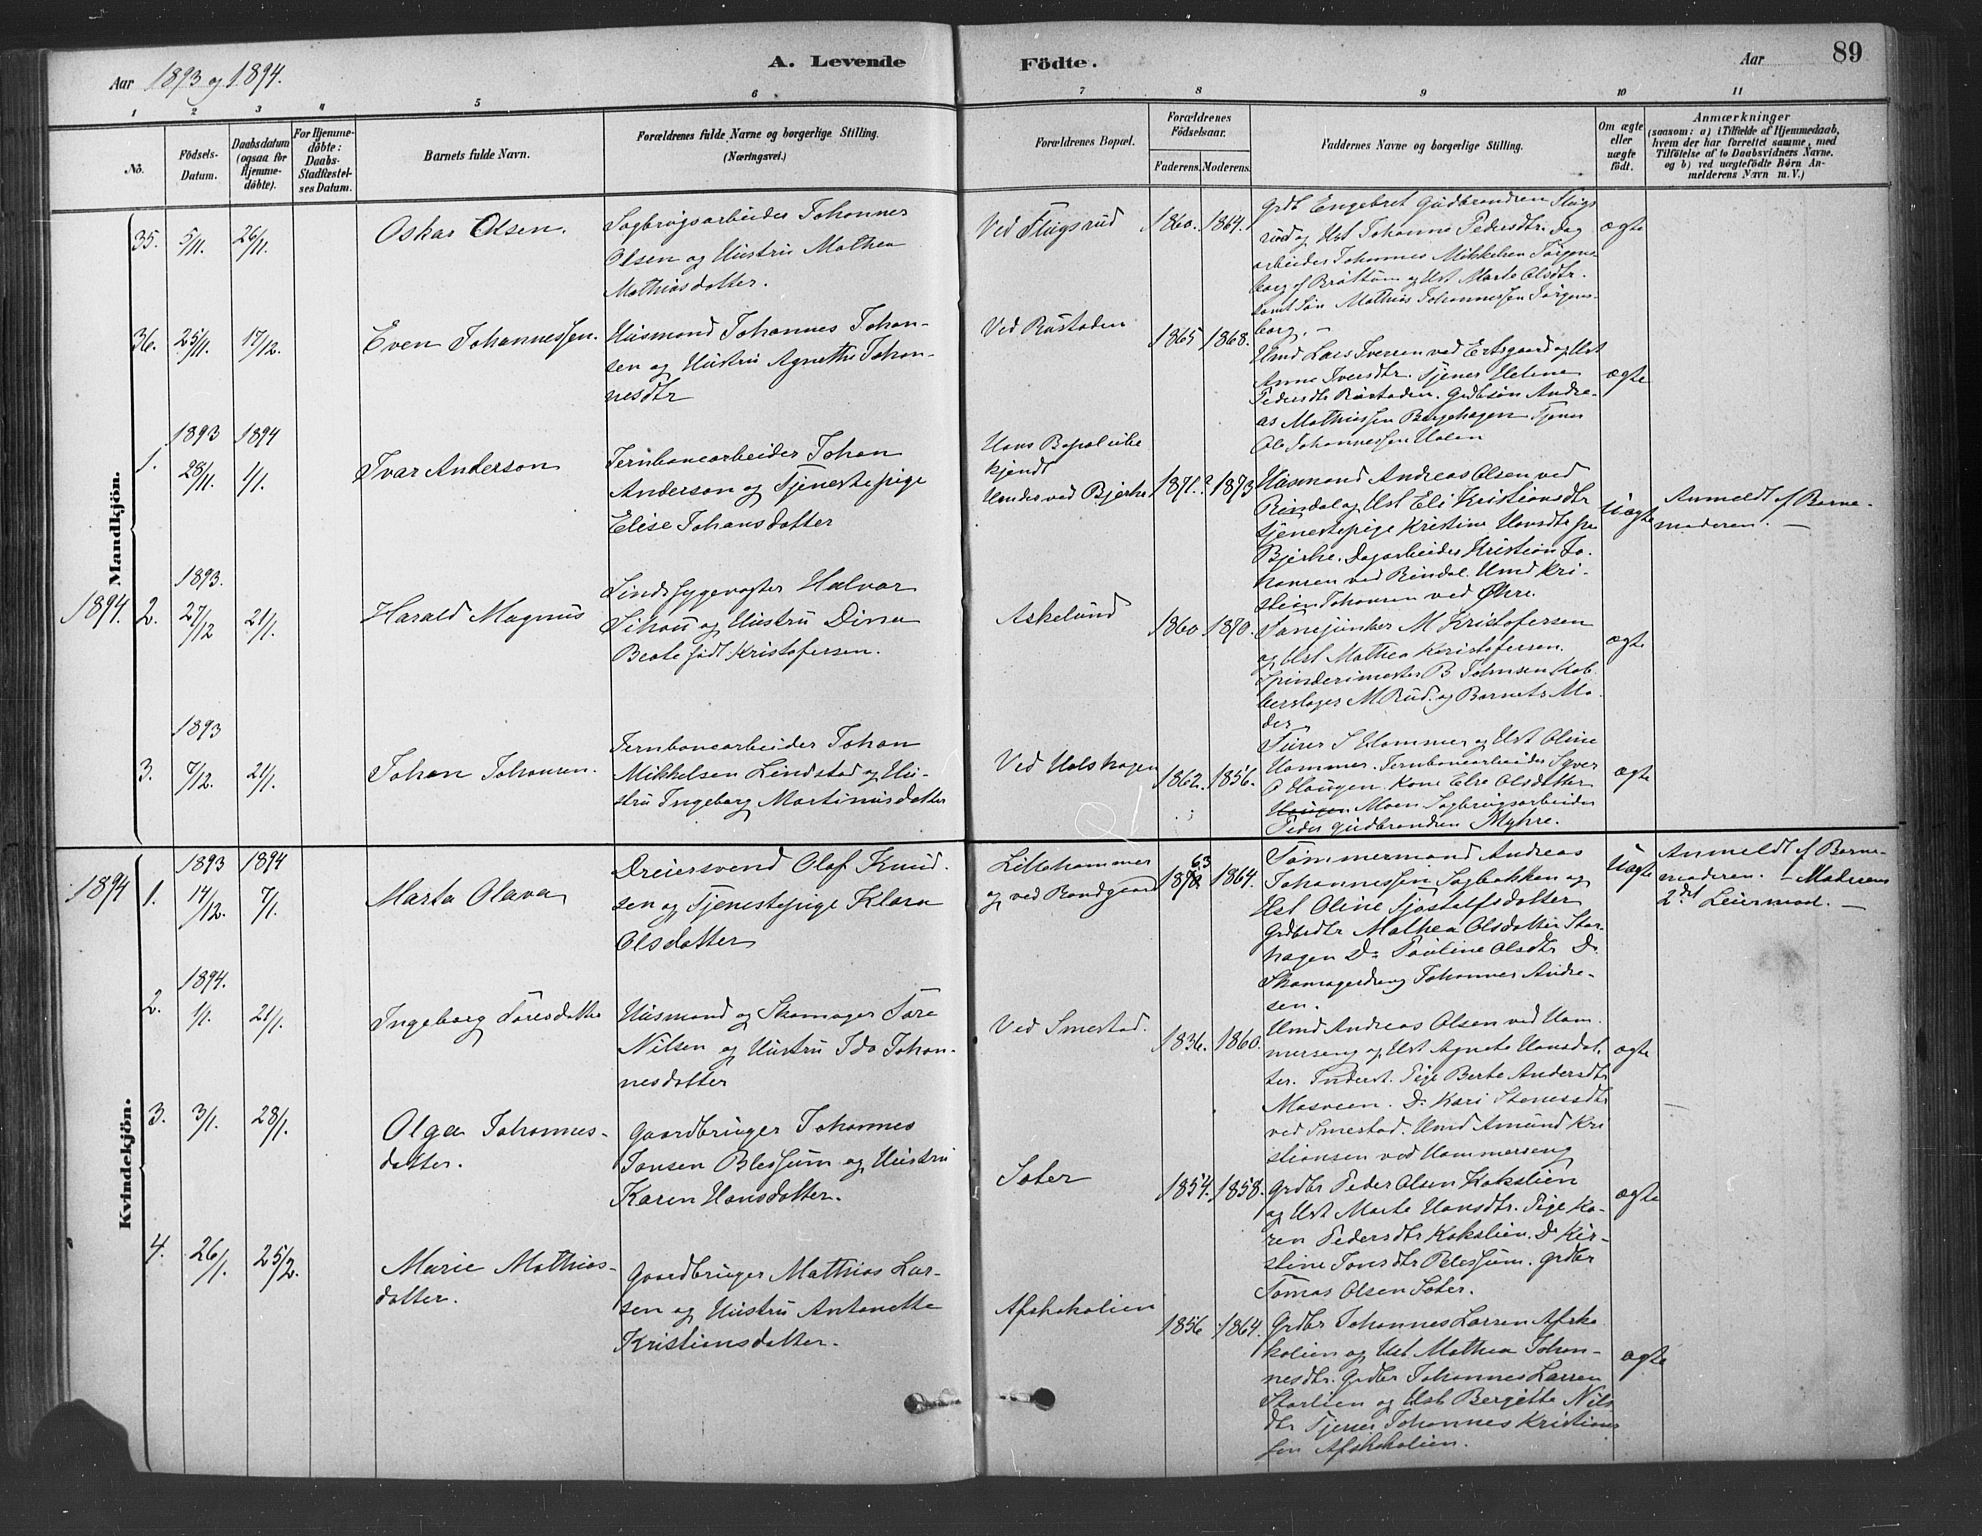 Aar 1893 og 1894.
A. Levende Födte.
Aar 89
1 2 3 4 5 6 7 8 9 10 11
No.
Födsels-Datum.
Daabsdatum (ogsaa for Hjemmedöbte).
For Hjemmedöbte: Daabs-Stadfæstelses Datum.
Barnets fulde Navn.
Forældrenes fulde Navne og borgerlige Stilling. (Næringsvei.)
Forældrenes Bopæl.
Forældrenes Födselsaar.
Faderens. Moderens.
Faddernes Navne og borgerlige Stilling.
Om ægte eller uægte födt.
Anmærkninger
(saasom: a) i Tilfælde af Hjemmedaab,
hvem der har forrettet samme, med
Tilföielse af to Daabsvidners Navne.
og b) ved uægtefödte Börn Anmelderens Navn m. V.)
Mandkjön.
35. 5/11. 26/11.
Oskar Olsen.
Sagbrugsarbeider Johannes
Olsen og Hustru Mathea
Mathiasdatter.
Ved Flugsrud
1860. 1864.
Grdb Engebret Gudbrandsen Flugs
rud og Hst Johanne Pedersdtr. Dag
arbeider Johannes Mikkelsen Jörgens
borg af Bröttum og Hst Marte Olsdtr.
samt Sön Mathias Johannessen Jörgens-
borg.
ægte
36. 25/11. 17/12.
Even Johannessen.
Husmand Johannes Johan-
sen og Hustru Agnethe Johan-
nesdtr
Ved Röstaden
1865 1868.
Hmd Lars Iversen ved Ertsgaard og Hst
Anne Iversdtr. Tjener Helene
Pedersdtr Röstaden. Grdbsön Andre-
as Mathiassen Bergehagen Tjener
Ole Johannessen Holen
ægte
1894.
1. 1893 28/11. 1894 1/1.
Ivar Anderson
Jernbanearbeider Johan
Anderson og Tjenestepige
Elise Johansdatter
Hans Bopæl ube
kjendt
Hendes ved Bjerke
1871.? 1873
Husmand Andreas Olsen ved
Rindal og Hst Eli Kristiansdtr
Tjenestepige Kristine Hansdtr fra
Bjerke. Dagarbeider Kristian Jo-
hansen ved Rindal. Hmd Kri-
stian Johansen ved Øhre.
Uægte
Anmeldt af Barne-
moderen.
2. 1893. 27/12 21/1.
Harald Magnus
Sindssygevogter Halvor
Sihou og Hustru Dina
Beate födt Kristofersen.
Askelund
1860. 1870.
Fanejunker M Kristofersen
og Hst Mathea Kristofersen.
Spinderimester B Johnsen Kob-
berslager M Rud. og Barnets Mo-
der
ægte
3. 1893 7/12. 21/1.
Johan Johansen.
Jernbanearbeider Johan
Mikkelsen Lindstad og Hu-
stru Ingeborg Martinusdatter
Ved Holshagen
1862. 1856.
Furer S Hammer og Hst Oline
Hammer. Jernbanearbeider Syver
O Haugen. Kone Else Olsdatter
Haugen Moen Sagbrugsarbeider
Peder Gudbrandsen Myhre.
ægte
Kvindekjön.
1894
1. 1893 14/12. 1894 7/1.
Marta Olava
Dreiersvend Olaf Knud-
sen og Tjenestepige Klara
Olsdatter
Lillehammer
og ved Bondgaard
1863 1864.
Tömmermand Andreas
Johannessen Sagbakken og
Hst Oline Tjostolfsdatter
Grdbrdtr Mathea Olsdatter Stor-
hagen Do Pauline Olsdtr Do
Skomagerdreng Johannes Andre-
sen.
Uægte
Anmeldt af Barne-
moderen. - Moderens
2det Leiermaal.
2. 1894. 1/1. 21/1.
Ingeborg Toresdatter
Husmand og Skomager Tore
Nilsen og Hustru Ida Johan-
nesdatter
Ved Smestad.
1836. 1860.
Hmd Andreas Olsen ved Ham-
merseng og Hst Agnete Hansdat-
ter. Inderst. Pige Berte Andersdtr
Mosveen. Do Kari Stenersdtr
ved Smestad. Hmd Amund Kri
stiansen ved Hammerseng
ægte
3. 3/1. 28/1.
Olga Johannes-
datter.
Gaardbruger Johannes
Jonsen Blessum og Hustru
Karen Hansdatter.
Soter
1854. 1858.
Grdbr Peder Olsen Kokslien
og Hst Marte Hansdtr. Pige Ka-
ren Pedersdtr Kokslien. Do Kir-
stine Jonsdtr Blessum. Grdbr
Tomas Olsen Soter.
ægte
4. 26/1. 25/2.
Marie Mathias-
datter.
Gaardbruger Mathias Lar-
sen og Hustru Antonette
Kristiansdatter.
Afskakalien
1856. 1864.
Grdbr Johannes Larsen Afska
kalien og Hst Mathea Johan-
nesdtr. Grdbr Johannes Larsen
Storlien og Hst Bergitte Nils
dtr Tjener Johannes Kristians
sen Afskakalien.
ægte